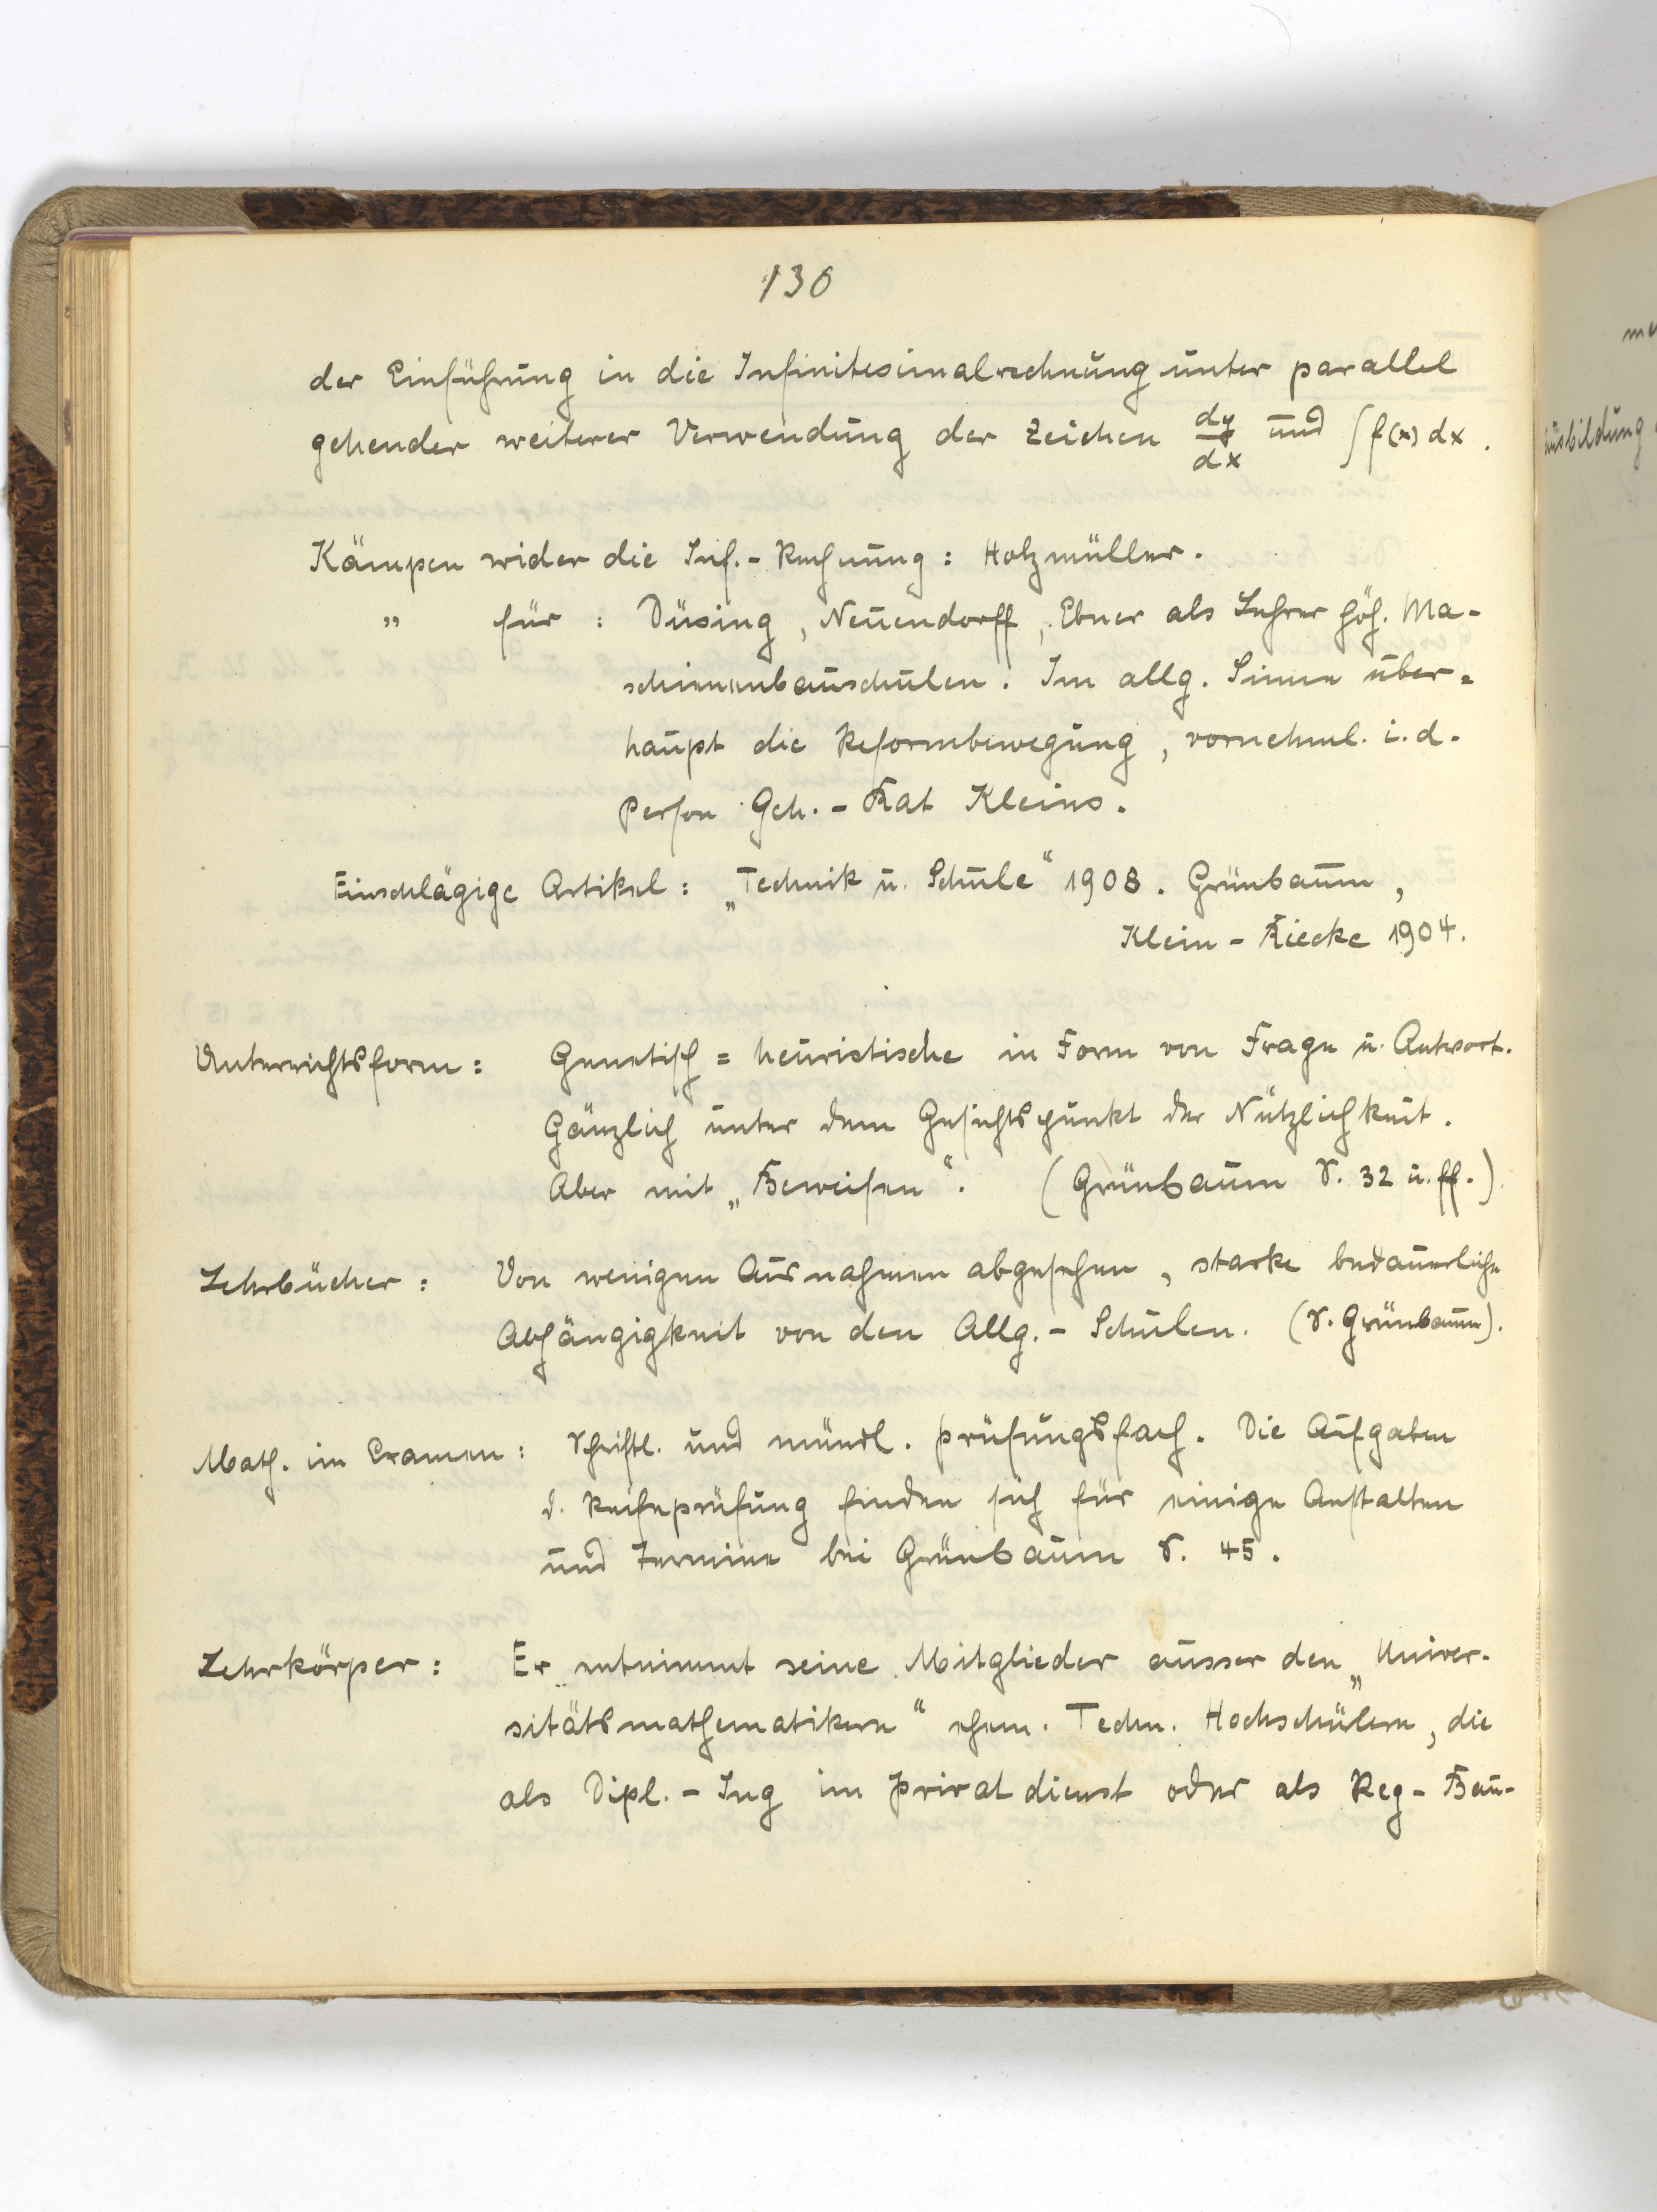 130
der Einführung in die Infinitesimalrechnung unter parallel
gehender weiterer Verwendung der Zeichen dy/dx und ∫ f(x) dx.
Kämpen wider die Inf.-Rechnung: Holzmüller.
" für : Düsing, Neuendorff, Ebner als Lehrer höh. Ma-
schinenbauschulen. Im allg. Sinne über=
haupt die Reformbewegung, vornehml. i. d.
Person Geh.-Rat Kleins.
Einschlägige Artikel: „Technik u. Schule“ 1908. Grünbaum,
Klein - Riecke 1904.
Unterrichtsform: Genetisch = heuristische in Form von Frage u. Antwort.
Gänzlich unter dem Gesichtspunkt der Nützlichkeit.
Aber mit „Beweisen“. (Grünbaum S. 32 u. ff.)
Lehrbücher: Von wenigen Ausnahmen abgesehen, starke bedauerliche
Abhängigkeit von den Allg.-Schulen. (S. Grünbaum).
Math. im Examen: Schriftl. und mündl. Prüfungsfach. Die Aufgaben
d. Reifeprüfung finden sich für einige Anstalten
und Termine bei Grünbaum S. 45.
Lehrkörper: Er entnimmt seine Mitglieder ausser den „Univer-
sitätsmathematikern“ ehem. Techn. Hochschülern, die
als Dipl.-Ing im Privatdienst oder als Reg-Bau-
ausbildung